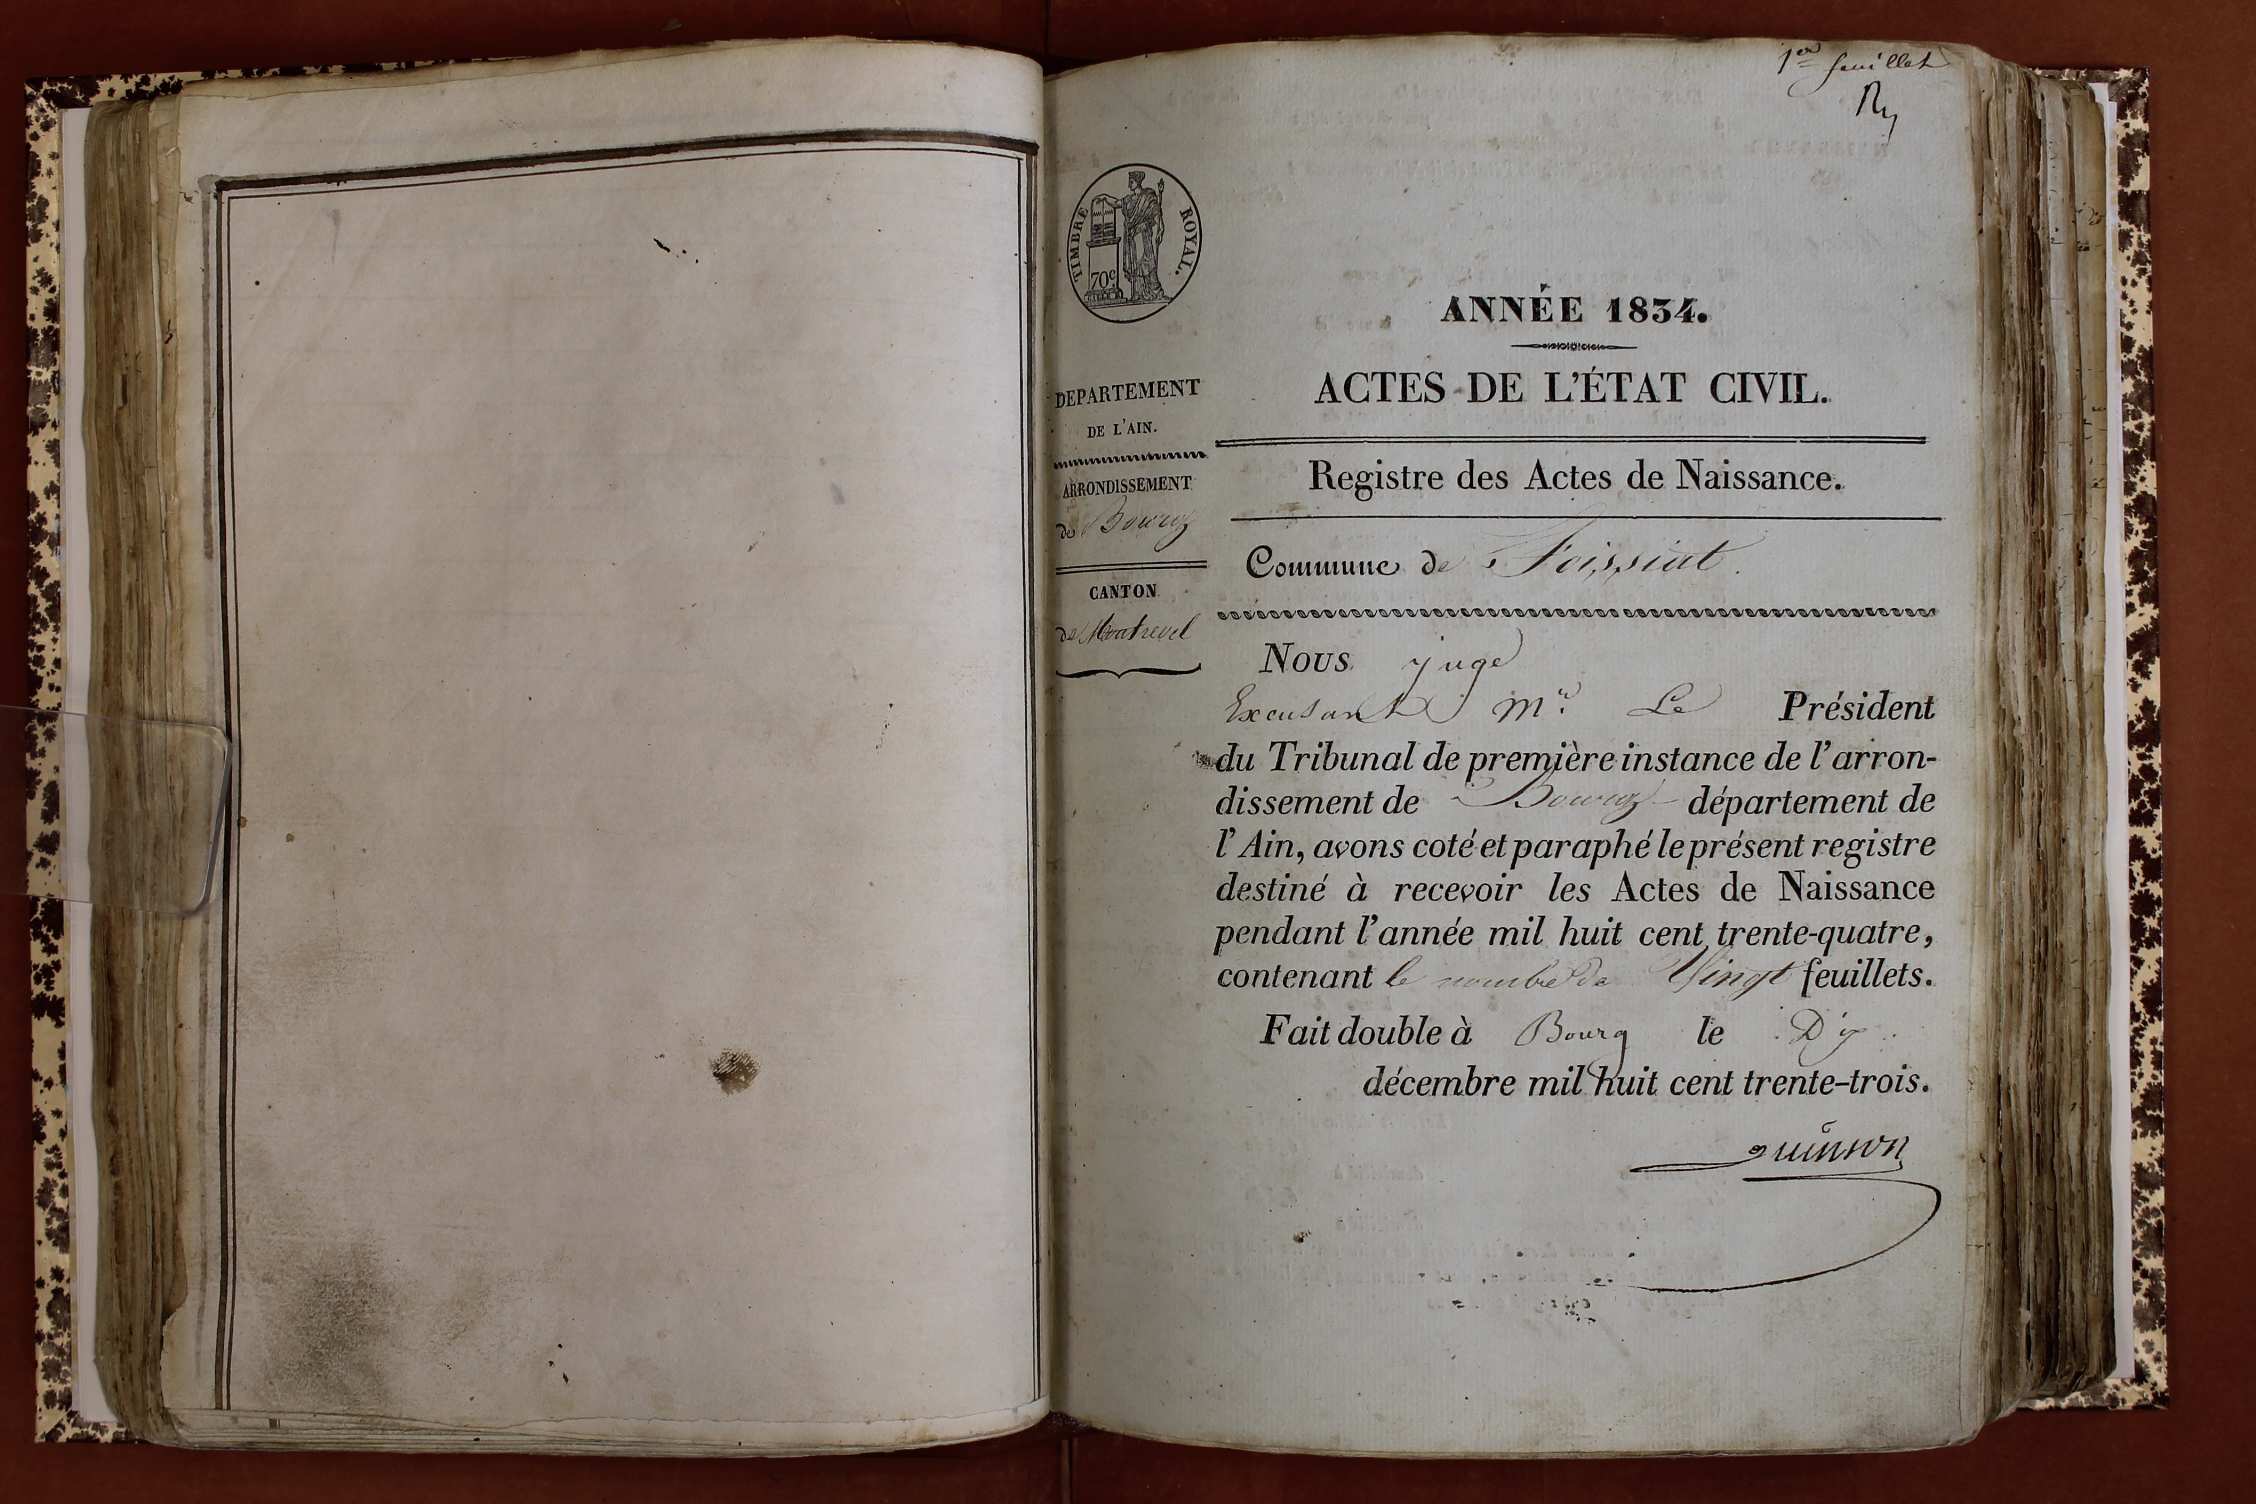 1er feuillet
TIMBRE ROYAL.
70c
ANNÉE 1834.
ACTES DE L'ÉTAT CIVIL.
DEPARTEMENT
DE L'AIN.
ARRONDISSEMENT
de Bourg
CANTON
de Montrevel
Registre des Actes de Naissance.
Commune de Foissiat.
Nous juge
Excusant Mr. Le Président
du Tribunal de première instance de l'arron-
dissement de Bourg département de
l'Ain, avons coté et paraphé le présent registre
destiné à recevoir les Actes de Naissance
pendant l'année mil huit cent trente-quatre,
contenant le nombre de Vingt feuillets.
Fait double à Bourg le Dix
décembre mil huit cent trente-trois.